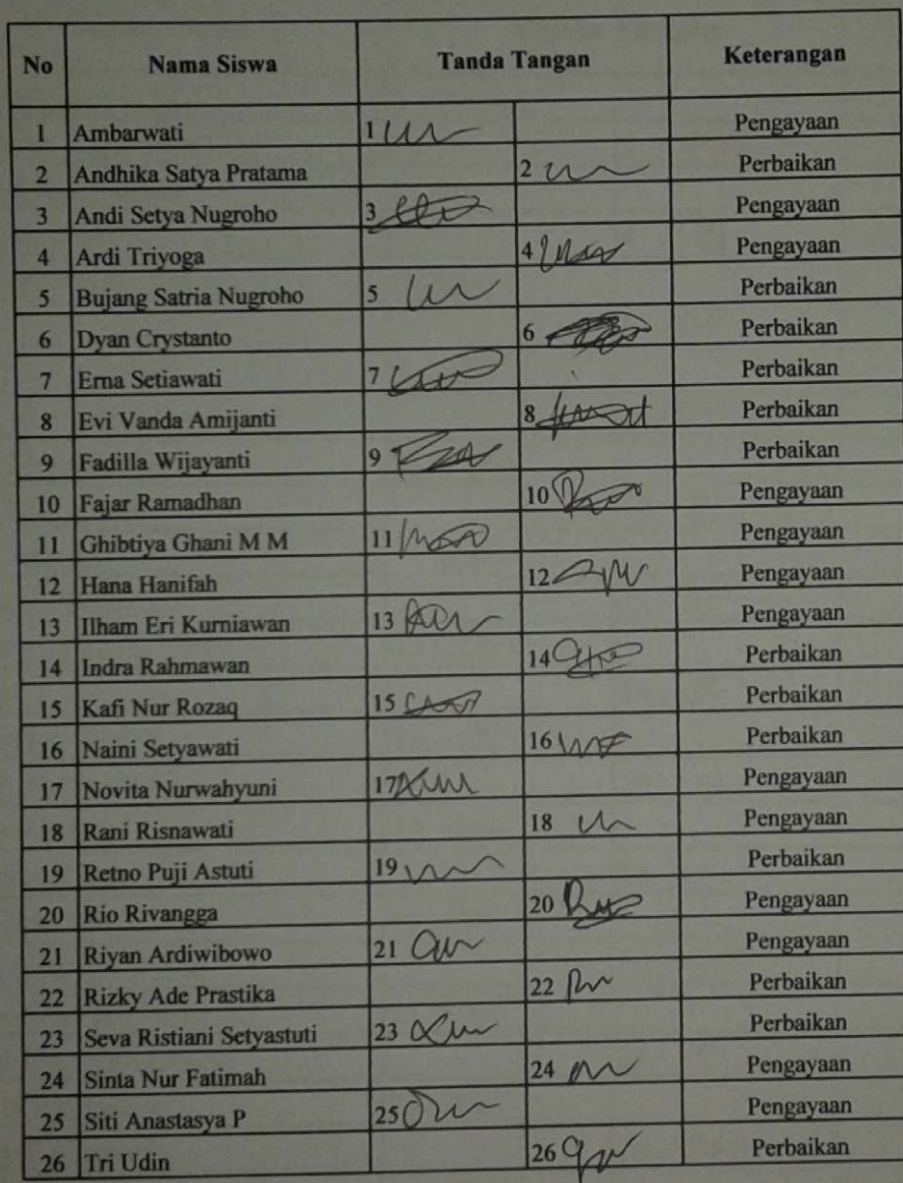 No Nama Siswa Tanda Tangan Keterangan
1 Ambarwati 1 Pengayaan
2 Andhika Satya Pratama 2 Perbaikan
3 Andi Setya Nugroho 3 Pengayaan
4 Ardi Triyoga 4 Pengayaan
5 Bujang Satria Nugroho 5 Perbaikan
6 Dyan Crystanto 6 Perbaikan
7 Erna Setiawati 7 Perbaikan
8 Evi Vanda Amijanti 8 Perbaikan
9 Fadilla Wijayanti 9 Perbaikan
10 Fajar Ramadhan 10 Pengayaan
11 Ghibtiya Ghani M M 11 Pengayaan
12 Hana Hanifah 12 Pengayaan
13 Ilham Eri Kurniawan 13 Pengayaan
14 Indra Rahmawan 14 Perbaikan
15 Kafi Nur Rozaq 15 Perbaikan
16 Naini Setyawati 16 Perbaikan
17 Novita Nurwahyuni 17 Pengayaan
18 Rani Risnawati 18 Pengayaan
19 Retno Puji Astuti 19 Perbaikan
20 Rio Rivangga 20 Pengayaan
21 Riyan Ardiwibowo 21 Pengayaan
22 Rizky Ade Prastika 22 Perbaikan
23 Seva Ristiani Setyastuti 23 Perbaikan
24 Sinta Nur Fatimah 24 Pengayaan
25 Siti Anastasya P 25 Pengayaan
26 Tri Udin 26 Perbaikan